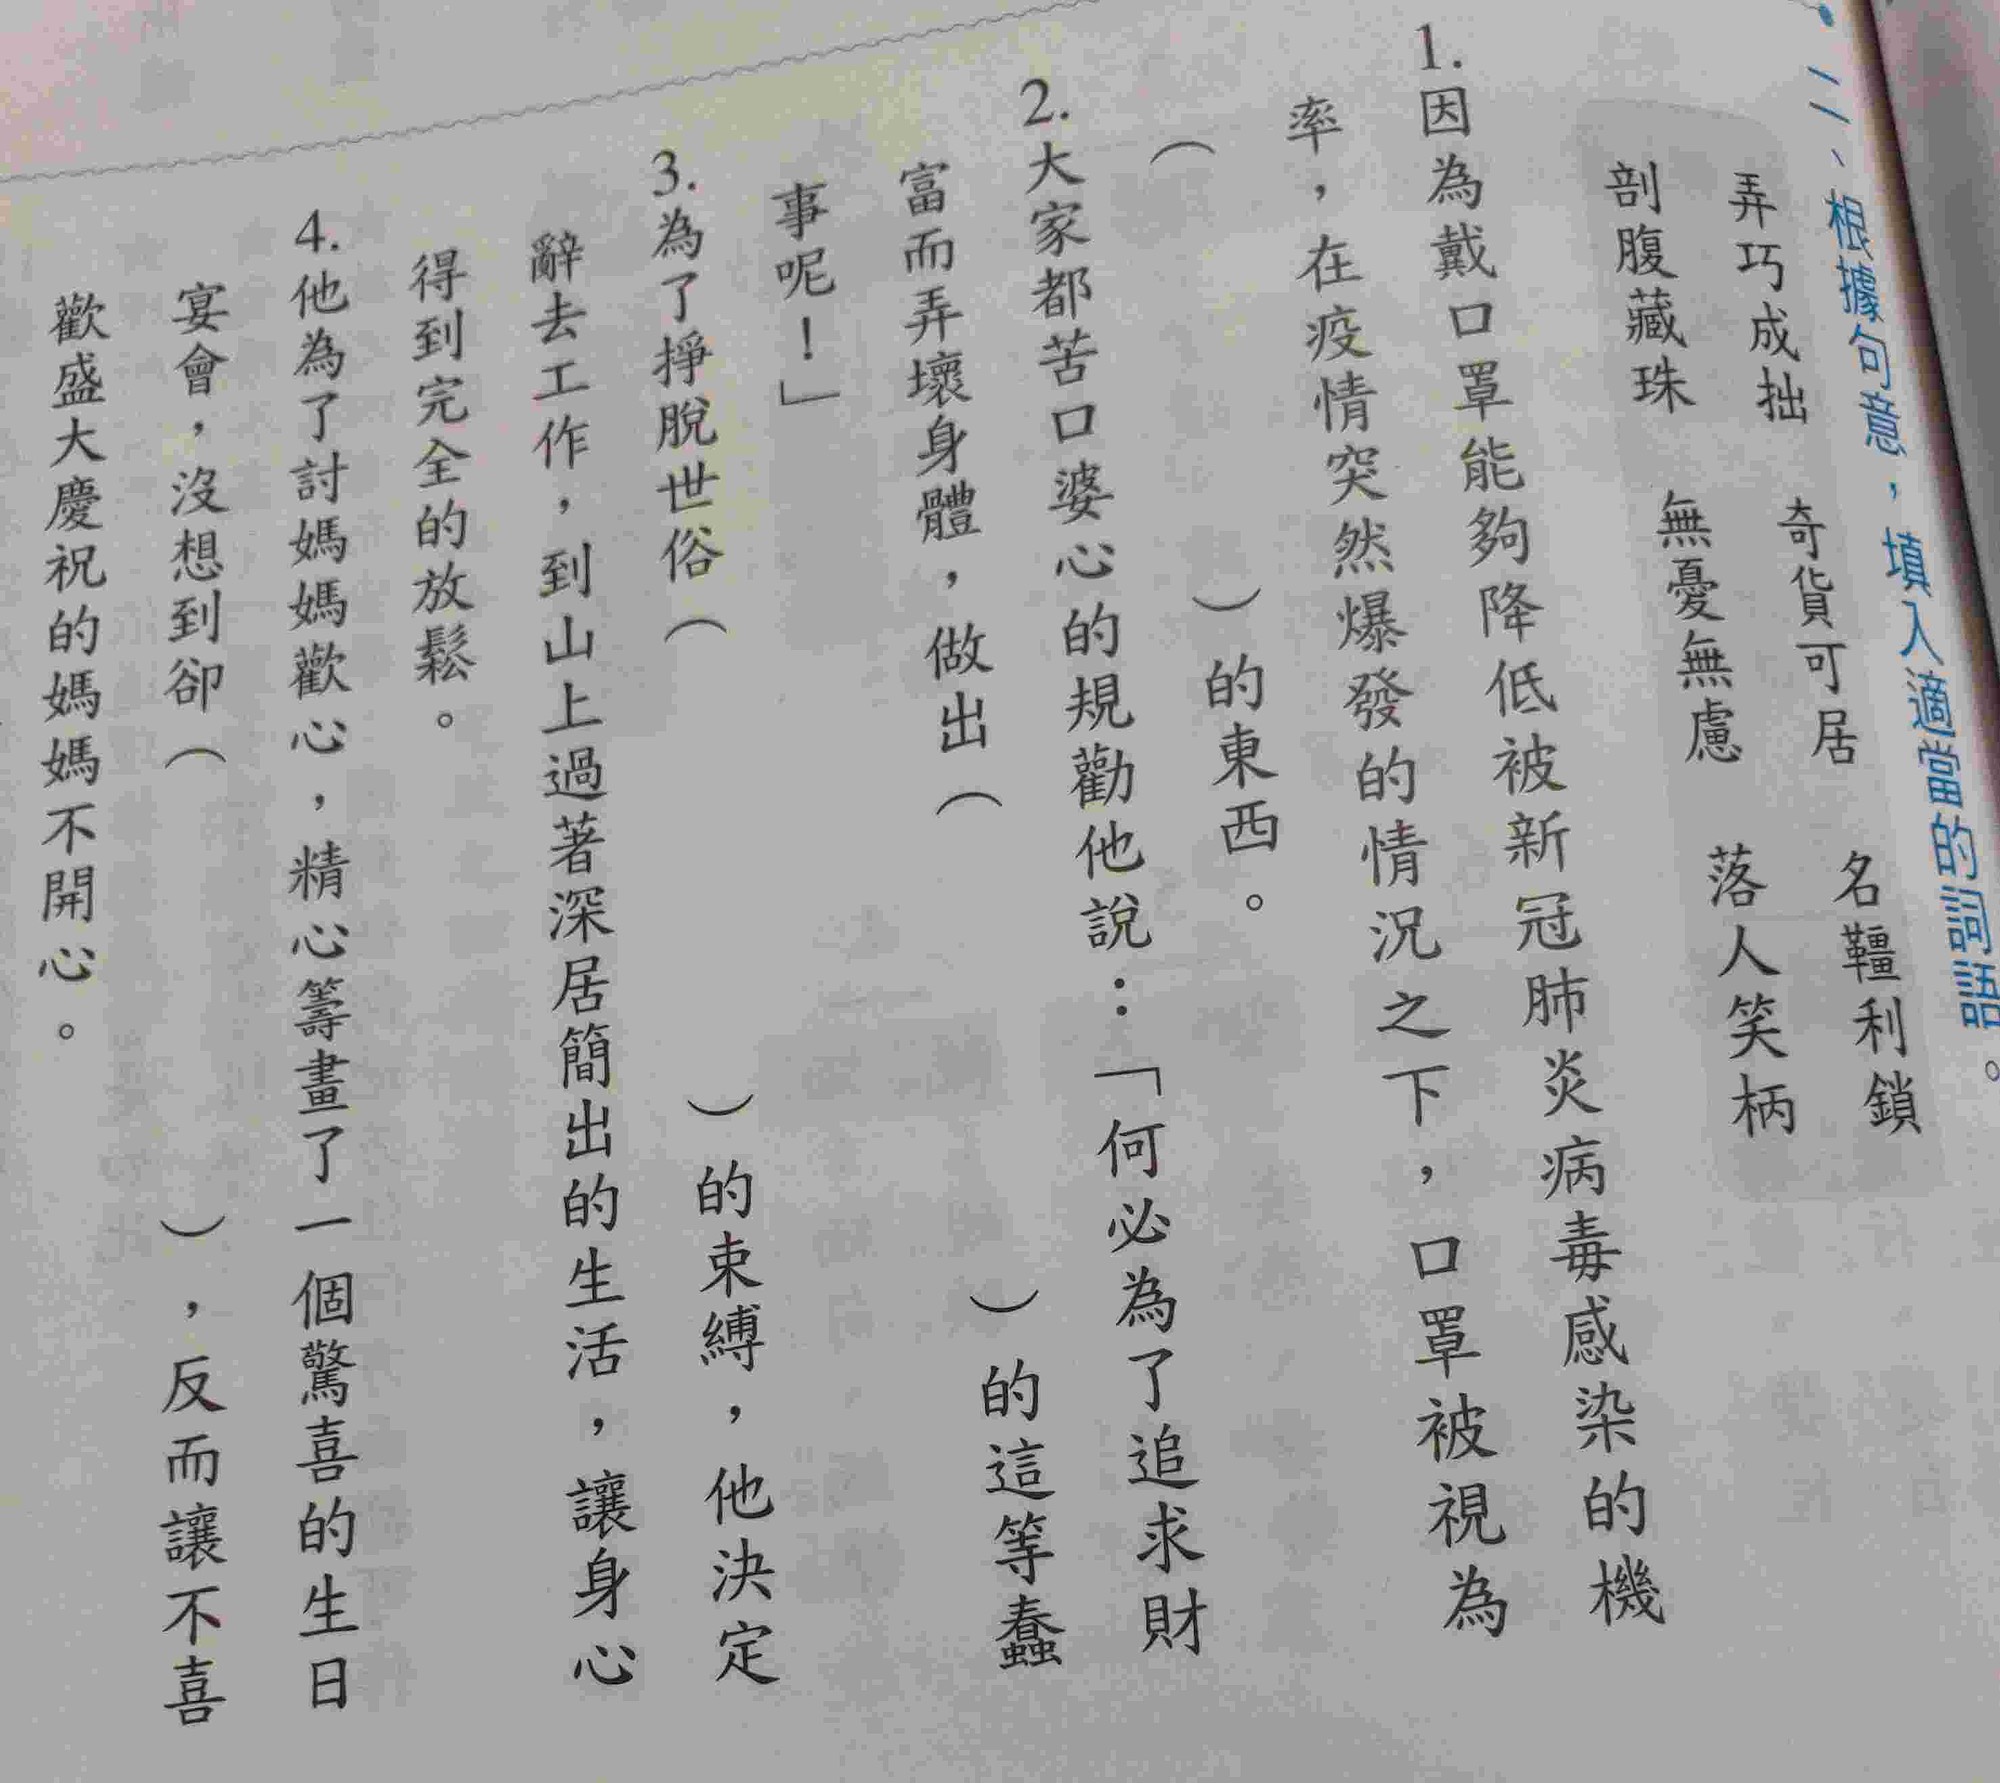 二、根據句意，填入適當的詞語。
弄巧成拙　奇貨可居　名韁利鎖
剖腹藏珠　無憂無慮　落人笑柄
1.因為戴口罩能夠降低被新冠肺炎病毒感染的機
率，在疫情突然爆發的情況之下，口罩被視為
（　　　　）的東西。
2.大家都苦口婆心的規勸他說：「何必為了追求財
富而弄壞身體，做出（　　　　）的這等蠢
事呢！」
3.為了掙脫世俗（　　　　）的束縛，他決定
辭去工作，到山上過著深居簡出的生活，讓身心
得到完全的放鬆。
4.他為了討媽媽歡心，精心籌畫了一個驚喜的生日
宴會，沒想到卻（　　　　），反而讓不喜
歡盛大慶祝的媽媽不開心。